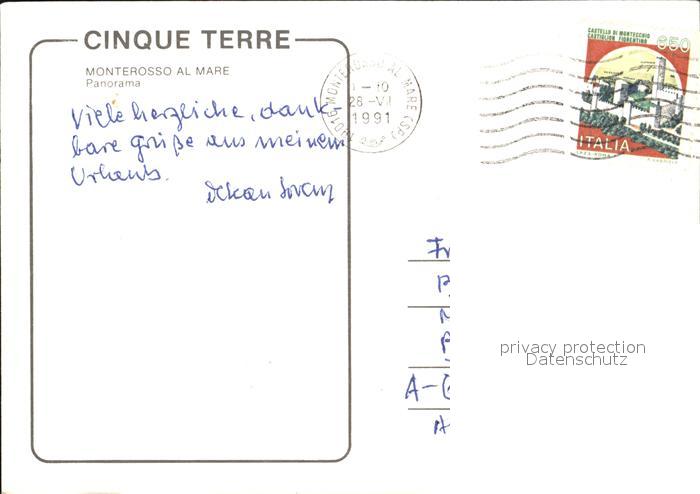 CINQUE TERRE
MONTEROSSO AL MARE
Panorama
Viele herzliche, dank-
bare grüße aus meinem
Urlaub.
MONTEROSSO AL MARE (SP)
1991
CASTELLO DI MONTECCHIO
CASTIGLION FIORENTINO
650
ITALIA
Fr
A-
privacy protection
Datenschutz